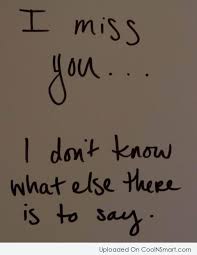 I miss
you...
I don't know
what else there
is to say.
Uploaded On CoolNSmart.com